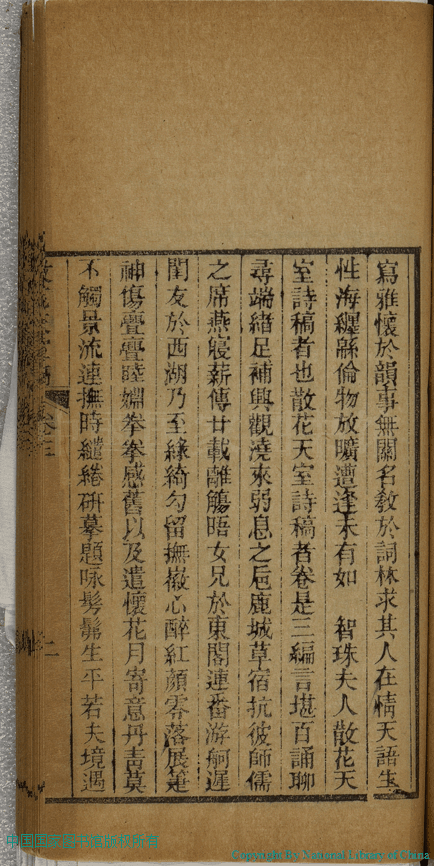 寫雅懷於韻事無關名教於詞林求其人在情天語生
性海纏緜倫物放曠遭逢未有如　智珠夫人散花天
室詩稿者也散花天室詩稿者卷是三編言堪百誦聊
尋端緒足補興觀澆來弱息之巵鹿城草宿抗彼師儒
之席燕寢薪傳廿載離觴晤女兄於東閣連番游舸遲
閨友於西湖乃至綠綺勾留撫嶽心醉紅顏零落展箑
神傷亹亹睦婣拳拳感舊以及遣懷花月寄意丹靑莫
不觸景流連撫時繾綣研摹題咏髣髴生平若夫境遇
Copyright By National Library of China